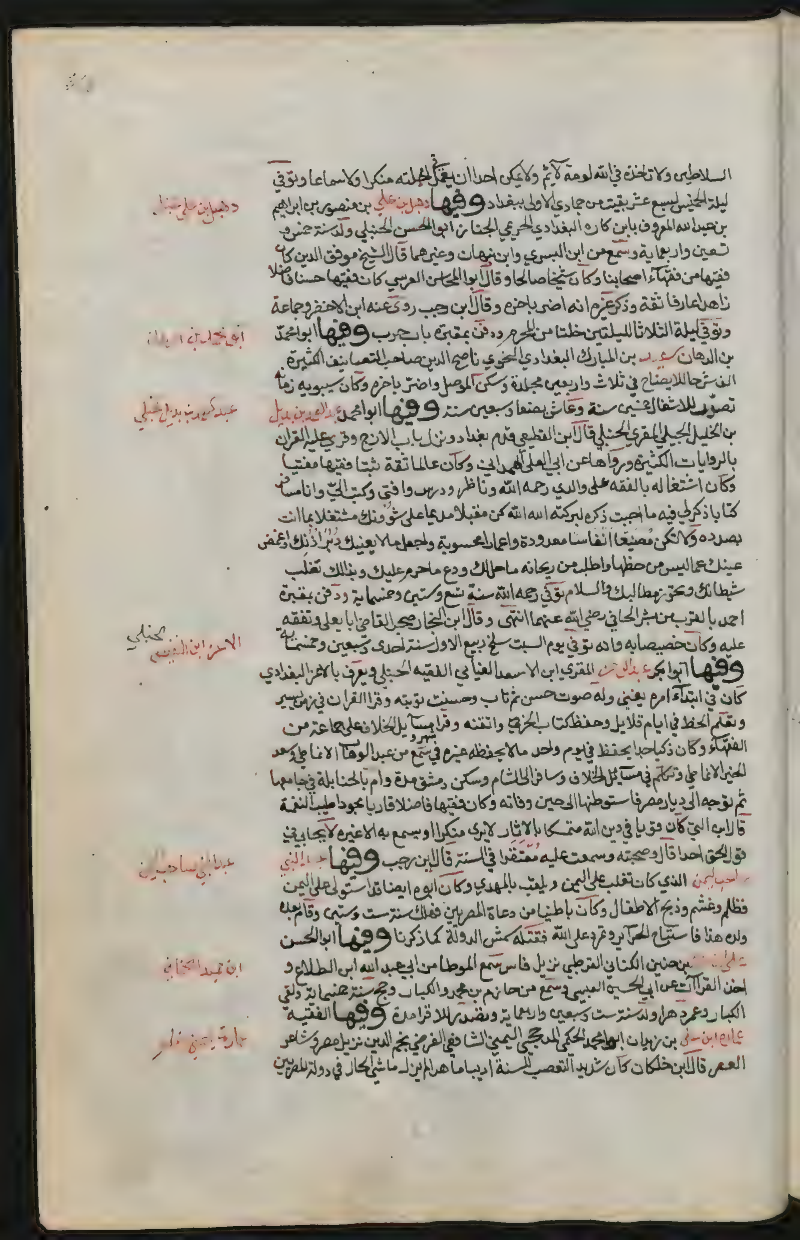 السلاطين ولا تأخذه في الله لومة لائم ولا يمكن احدا ان يفعل بمحلته منكرا ولا سماعا وتوفي
ليلة الخميس لسبع عشر بقيت من جمادي الاولى ببغداد وفيها دهبل بن علي بن منصور بن ابراهيم
بن عبد الله المعروف بابن كاره البغدادي الحريمي الخباز ابو الحسن الحنبلي ولد سنة خمس و
تسعين واربعماية وسمع من ابن البسري وابن نبهان وغيرهما قال الشيخ موفق الدين كان
فقيها من فقهاء اصحابنا وكان شيخا صالحا وقال ابو المحاسن القرشي كان فقيها حسنا فاضلا
زاهدا عارفا ثقة وذكر غيره انه اضر باخره وقال ابن رجب روى عنه ابن الاخضر وجماعة
وتوفي ليلة الثلاثا لليلتين خلتا من المحرم ودفن بمقبرة باب حرب وفيها ابو محمد
بن الدهان سعيد بن المبارك البغدادي النحوي ناصح الدين صاحب التصانيف الكثيرة
الف شرحا للايضاح في ثلاث واربعين مجلدة وسكن الموصل واضر باخره وكان سيبويه زمانه
تصدر للاشتغال خمسين سنة وعاش بضعا وسبعين سنة وفيها ابو محمد عبد الصمد بن بديل
بن الخليل الجيلي المقري الحنبلي قال ابن القطيعي قدم بغداد ونزل باب الازج وقري عليه القران
بالروايات الكثيرة ورواها عن ابي العلى الهمداني وكان عالما ثقة ثبتا فقيها مفتيا
وكان اشتغاله بالفقه على والدي رحمه الله وناظر ودرس وافتى وكتب الي وانا مسافر
كتابا ذكر لي فيه ما احببت ذكره لبركته الله الله كن مقبلا مديما على شؤونك مشتغلا بما انت
بصدده ولا تكن مضيعا انفاسا معدودة واعمارا محسوبة واجعل ما لا يعنيك دبر اذنك واغمض
عينك عما ليس من حظها واطلب من ريحانه ما حل لك ودع ما حرم عليك وبذلك تغلب
شيطانك وتحوز مطالبك والسلام توفي رحمه الله سنة تسع وستين وخمسماية ودفن بمقبرة
احمد بالقرب من بشر الحافي رضي الله عنهما انتهى وقال ابن النجار صحب القاضي ابا يعلى وتفقه
عليه وكان خصيصا به وانه توفي يوم السبت سلخ ربيع الاول سنة احدى وسبعين وخمسمايه
وفيها ابو بكر عبد الرحمن المقري ابن الاسعد العيالي الفقيه الحنبلي ويعرف بالاعز البغدادي
كان في ابتداء امره يغني وله صوت حسن ثم تاب وحسنت توبته وقرا القران في زمن يسير
وتعلم الخط في ايام قلايل وحفظ كتاب الخرقي واتقنه وقرا مسايل الخلاف على جماعة من
الفقهاء وكان ذكيا جدا يحفظ في يوم واحد ما لا يحفظه غيره في شهر وسمع من عبد الوهاب الانماطي وسعد
الخير الانماطي وتكلم في مسايل الخلاف وسافر الى الشام وسكن دمشق مدة وام بالحنابلة في جامعها
ثم توجه الى ديار مصر فاستوطنها الى حين وفاته وكان فقيها فاضلا قاريا مجودا طيب النغمة
قال ابن التي كان قويا في دين الله متمسكا بالاثار لا يرى منكرا او يسمع به الا غيره لا يحابي في
قول الحق احدا قال وصحبته وسمعت عليه معتقدا في السنة قال ابن رجب وفيها عبد النبي
صاحب اليمن الذي كان تغلب على اليمن ويلقب بالمهدي وكان ابوه ايضا قد استولى على اليمن
فظلم وغشم وذبح الاطفال وكان باطنيا من دعاة المصريين فهلك سنة ست وستين وقام بعده
ولده هذا فاستباح الحرائر وتمرد على الله فقتله شمس الدولة كما ذكرنا وفيها ابو الحسن
علي بن حنين الكناني القرطبي نزيل فاس سمع الموطا من ابي عبد الله ابن الطلاع و
اخذ القراآت عن ابي الحسين العبسي وسمع من حازم بن محمد والكبار وحج سنة خمسماية ولقي
الكبار وعمر دهرا ولد سنة ست وسبعين واربعماية وتصدر للاقرا مدة وفيها الفقيه
عمارة ابن علي بن زيدان ابو محمد الحكمي المذحجي اليمني الشافعي الفرضي نجم الدين نزيل مصر وشاعر
العصر قال ابن خلكان كان شديد التعصب للسنة اديبا ماهرا لم يزل ماشي الحال في دولة المصريين
دهبل بن علي حنبلي
عبد الصمد بن بديل الحنبلي
عبد النبي صاحب اليمن